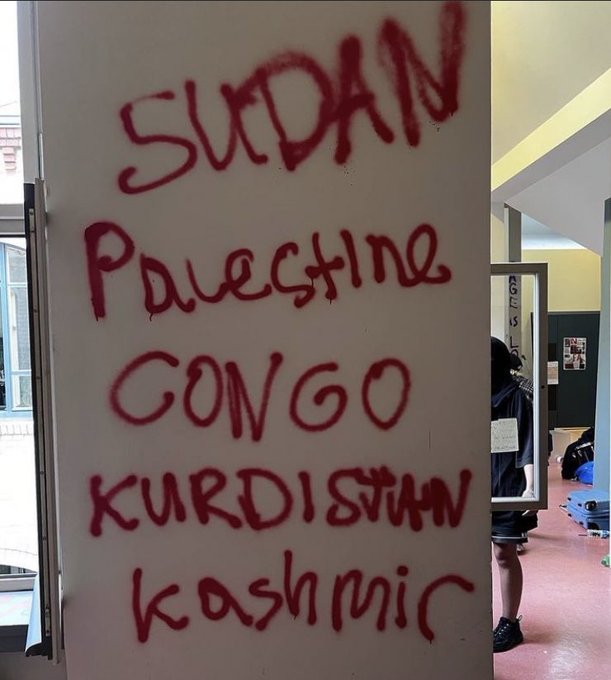 SUDAN
Palestine
CONGO
KURDISTAN
Kashmir